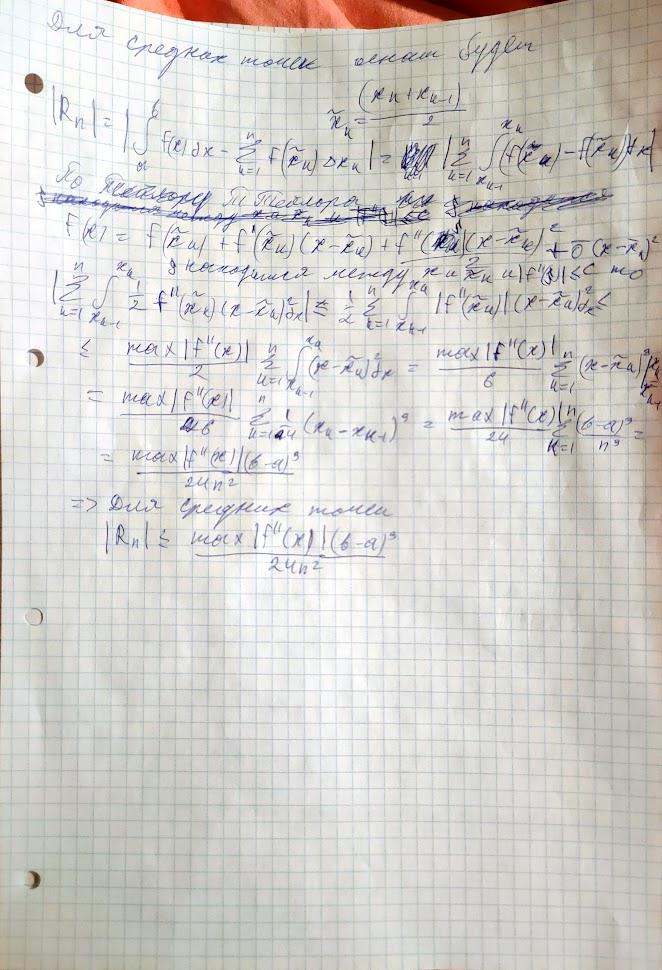 Для средних точек оценка будет
x̃ₙ = (xₙ + xₙ₋₁)/2
|Rₙ| = |∫ₐᵇ f(x)dx − Σₖ₌₁ⁿ f(x̃ₖ)Δxₖ| = |Σₖ₌₁ⁿ ∫_{xₖ₋₁}^{xₖ} (f(x̃ₖ) − f(x̃ₖ))dx|
По
f(x) = f(x̃ₖ) + f'(x̃ₖ)(x − x̃ₖ) + f''(x̃ₖ)(x − x̃ₖ)²/2 + ō(x − x̃ₖ)²
находится между x и x̃ₖ и |f''()| ≤ C то
|Σₖ₌₁ⁿ ∫_{xₖ₋₁}^{xₖ} 1/2 f''(x̃ₖ)(x − x̃ₖ)²dx| ≤ 1/2 Σₖ₌₁ⁿ ∫_{xₖ₋₁}^{xₖ} |f''(x̃ₖ)|(x − x̃ₖ)²dx ≤
≤ max|f''(x)|/2 Σₖ₌₁ⁿ ∫_{xₖ₋₁}^{xₖ} (x − x̃ₖ)²dx = max|f''(x)|/6 Σₖ₌₁ⁿ (x − x̃ₖ)³|_{xₖ₋₁}^{xₖ} =
= max|f''(x)|/6 Σₖ₌₁ⁿ 1/4 (xₖ − xₖ₋₁)³ = max|f''(x)|/24 Σₖ₌₁ⁿ (b−a)³/n³ =
= max|f''(x)|(b−a)³/24n²
=> Для средних точек
|Rₙ| ≤ max|f''(x)|(b−a)³/24n²